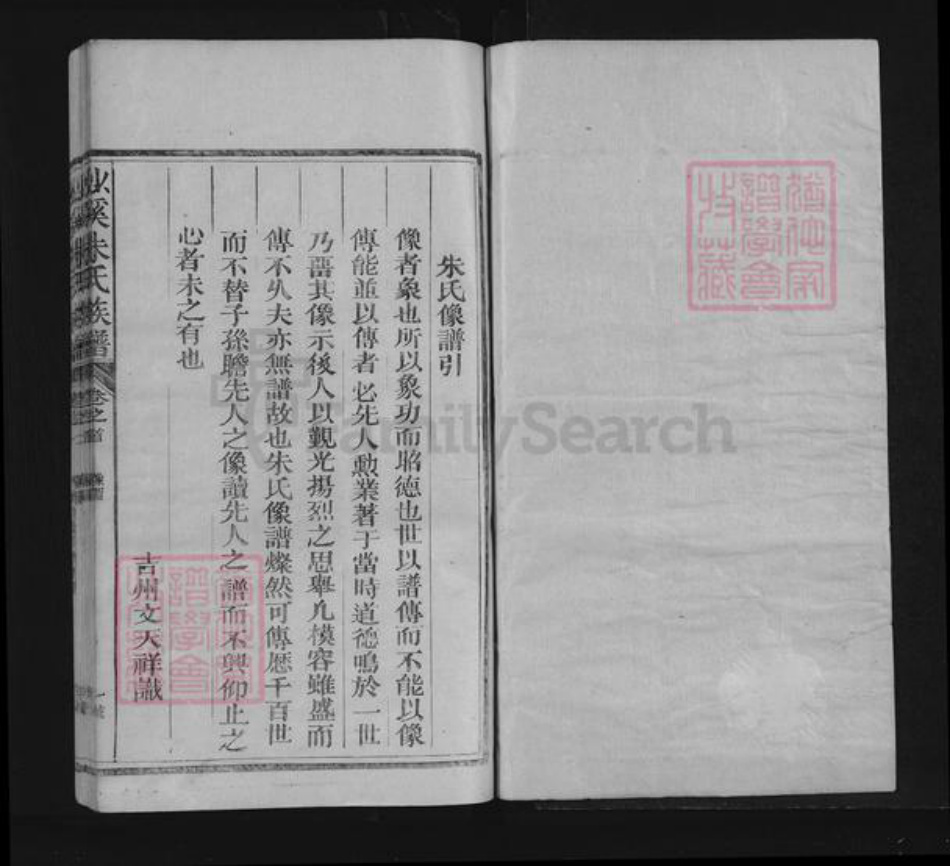 朱氏像譜引
像者象也所以象功而昭德也世以譜傳而不能以像
傳能並以傳者必先人勲業著于當時道德鳴於一世
乃啚其像示後人以觀光揚烈之思舉凡模容雖盛而
傳不久夫亦無譜故也朱氏像譜燦然可傳歷千百世
而不替子孫瞻先人之像讀先人之譜而不興仰止之
心者未之有也
吉州文天祥識
溪朱氏族譜
卷之首
譜學會
FamilySearch